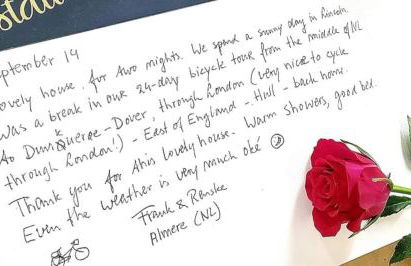 September 14
Lovely house, for two nights. We spend a sunny day in Lincoln.
Was a break in our 24-day bicycle tour from the middle of NL
to Dunkquerqe-Dover, through London (very nice to cycle
through London!) - East of England - Hull - back home.
Thank you for this lovely house. Warm showers, good bed.
Even the weather is very much oké
Frank & Renske
Almere (NL)